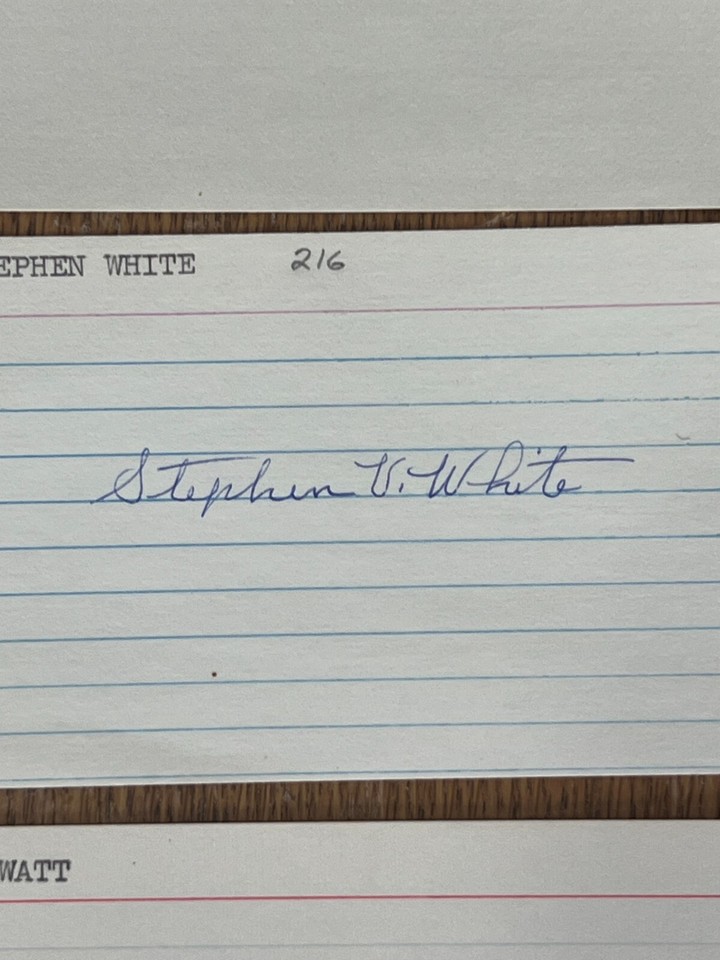 EPHEN WHITE 216
Stephen V. White
WATT